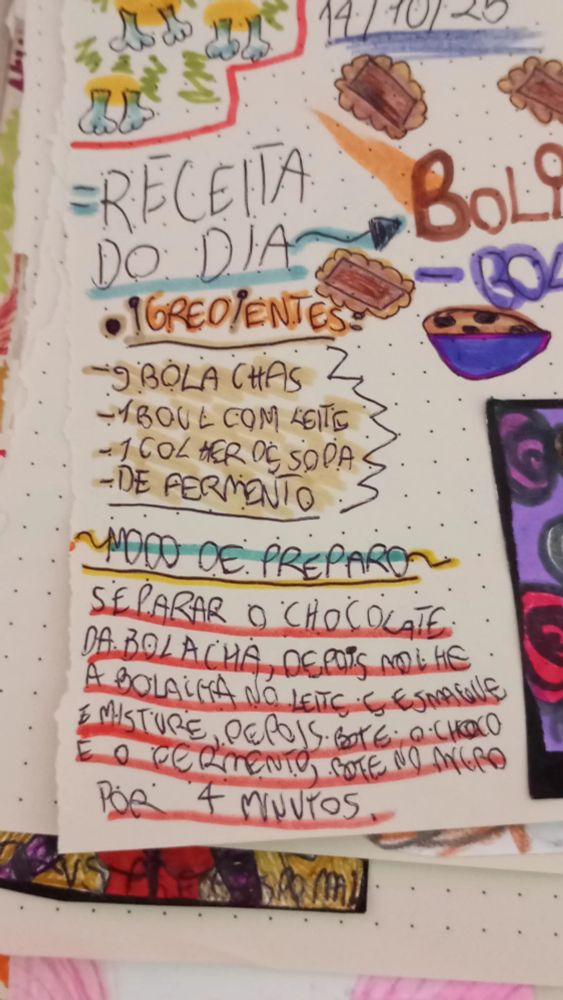 14/10/25
=RECEITA
DO DIA
BOLI
- BOL
• IGREDIENTES:
-9 BOLACHAS
-1 BOUL COM LEITE
-1 COLHER DE SOPA
-DE FERMENTO
~MODO DE PREPARO~
SEPARAR O CHOCOLATE
DA BOLACHA, DEPOIS MOLHE
A BOLACHA NO LEITE E ESMAGUE
E MISTURE, DEPOIS BOTE O CHOCO
E O FERMENTO, BOTE NO MICRO
POR 4 MINUTOS.